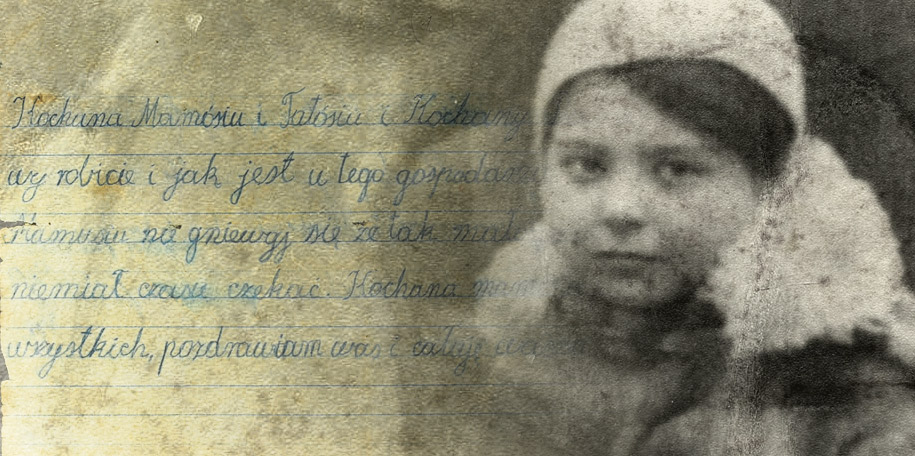 Kochana Mamósiu i Tatósiu i Kochany
wy robicie i jak jest u tego
Mamusiu nie gniewaj się że tak
niemiał czasu czekać. Kochana
wszystkich, pozdrawiam was i całuję